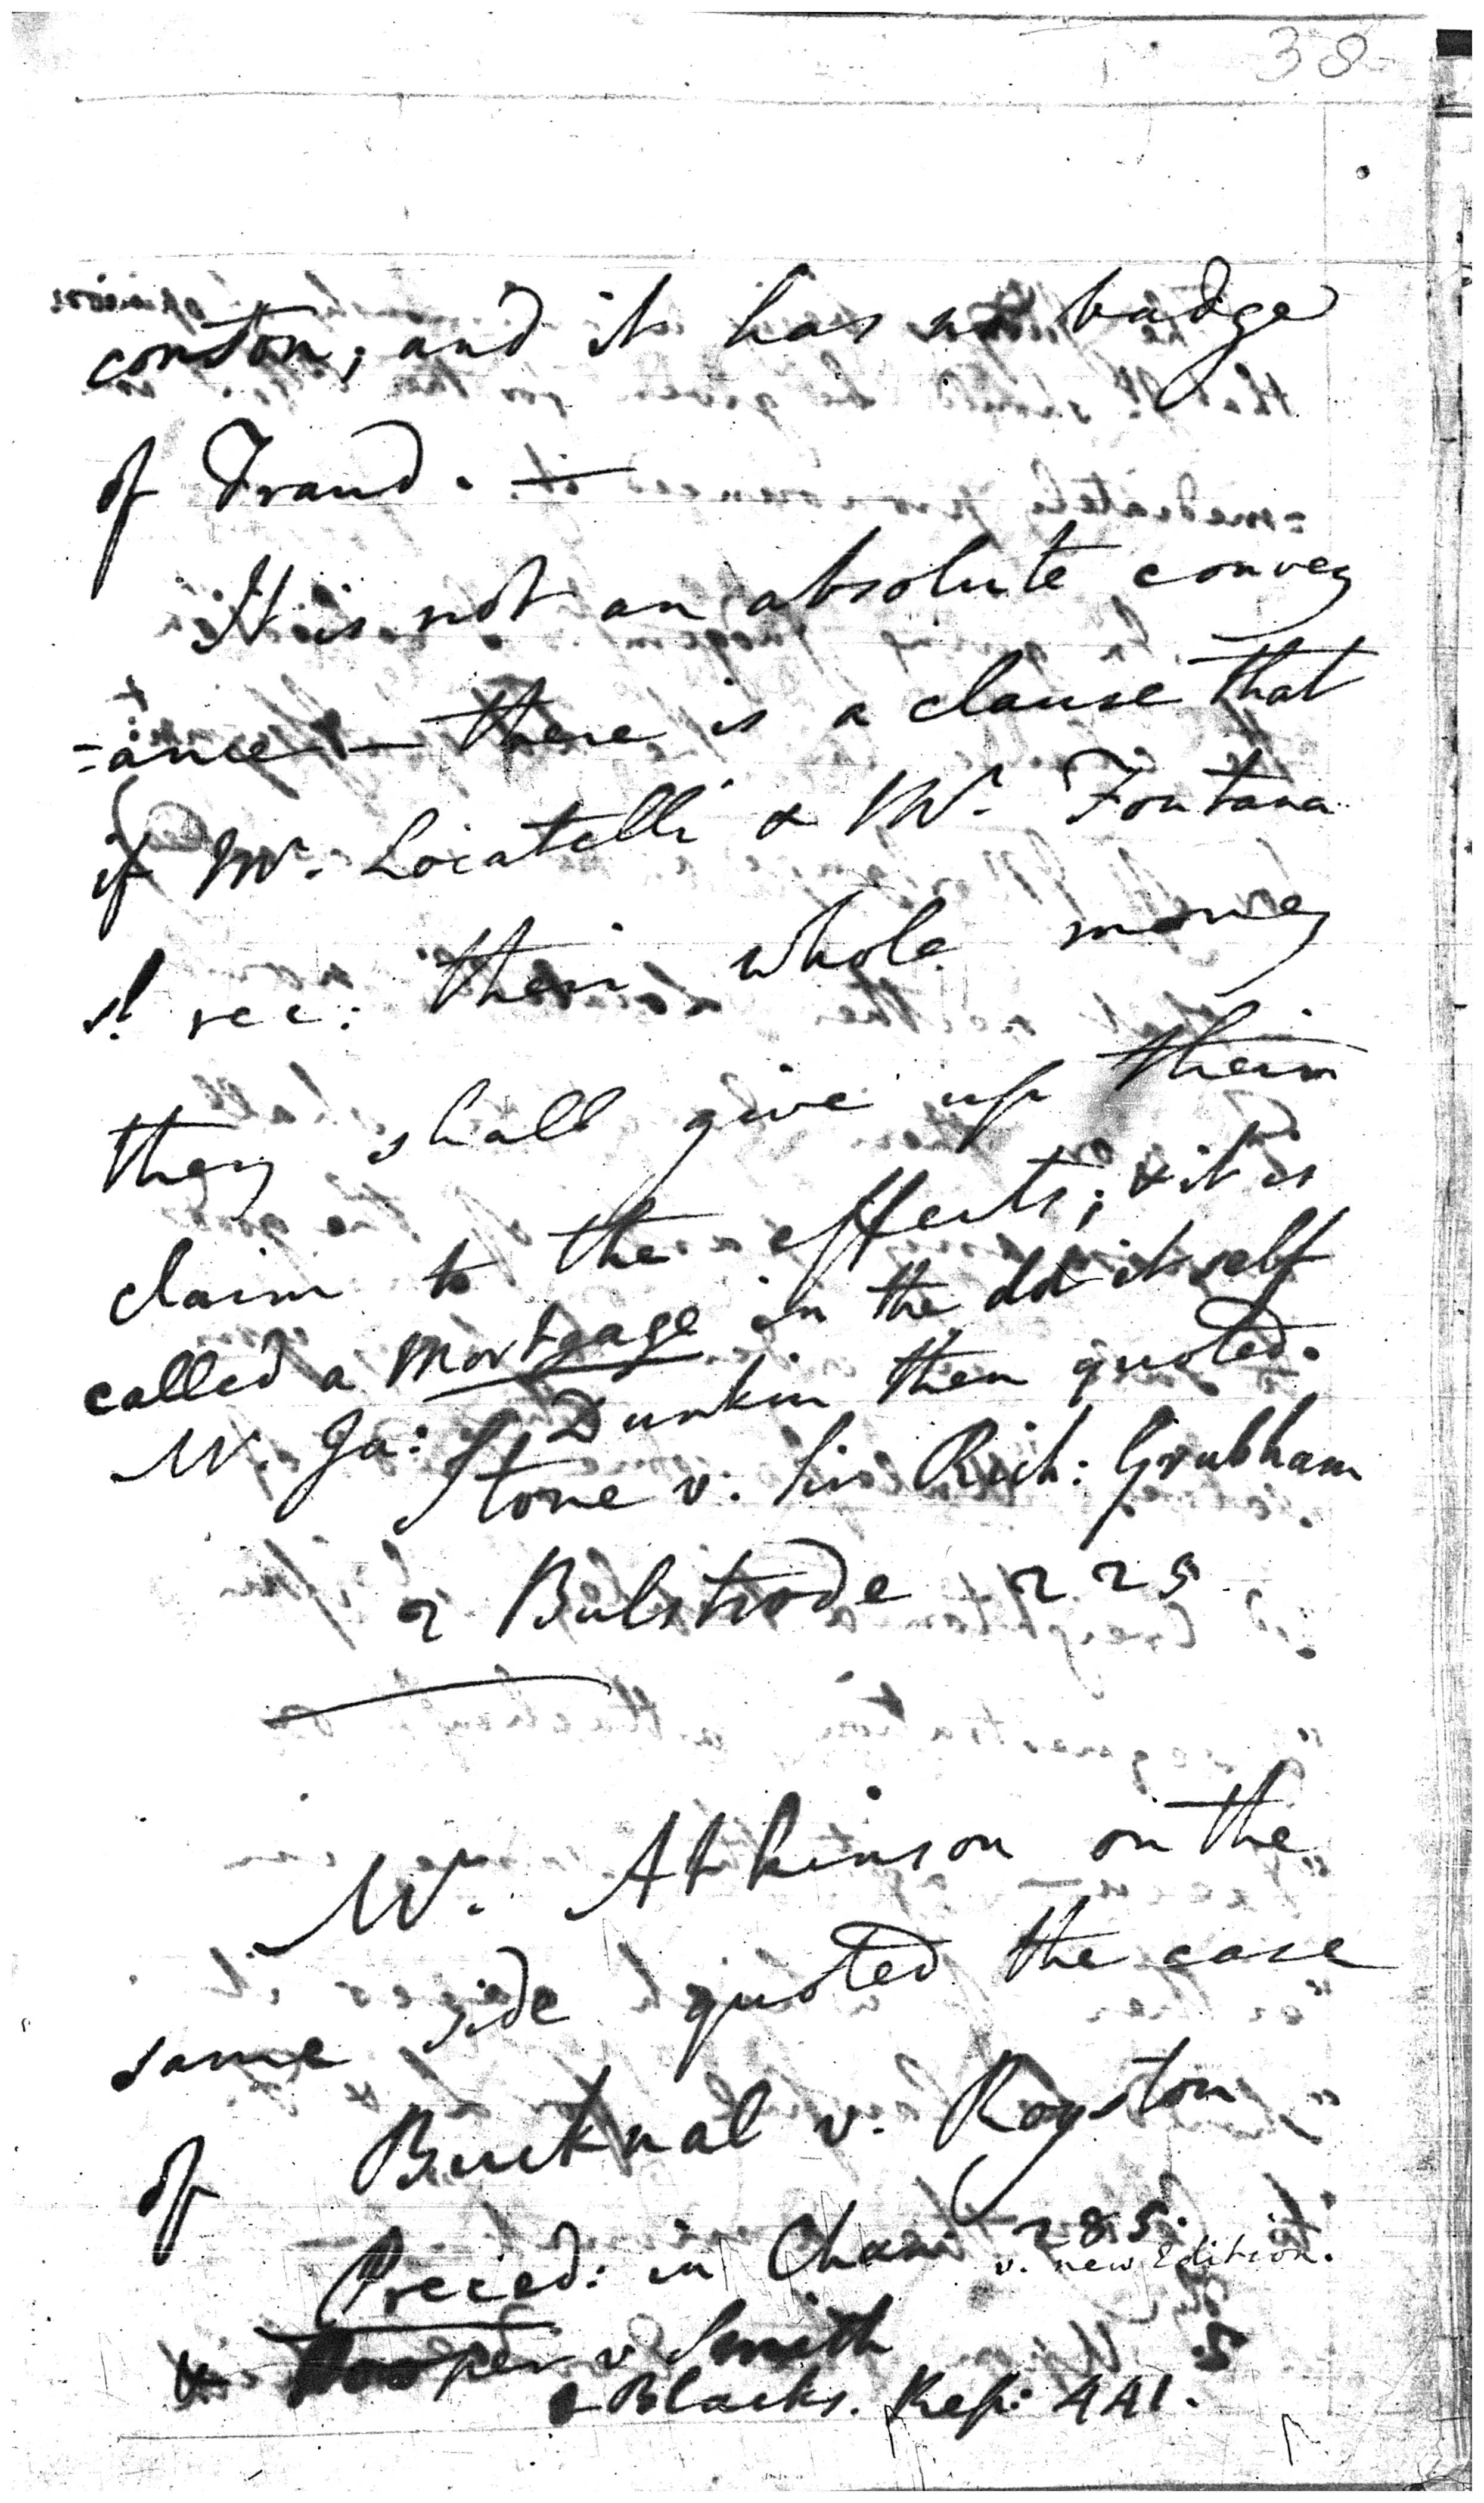 38
conston; and it has no badge
of Fraud. —
It is not an absolute convey
=ance — there is a clause that
if Mr. Locatelli & Mr. Fontana
sd. rec: their whole money
they shall give up their
claim to the effects; & it is
called a Mortgage in the dd itself
Mr. Ja: Dunkin then quoted.
Stone v. Sir Rich: Grubham
2 Bulstrode 225
Mr. Atkinson on the
same side quoted the case
of Bucknal v. Royston
Preced: in Chan: 285.
v. new Edition.
& v Smith
Blacks. Rep: 441.